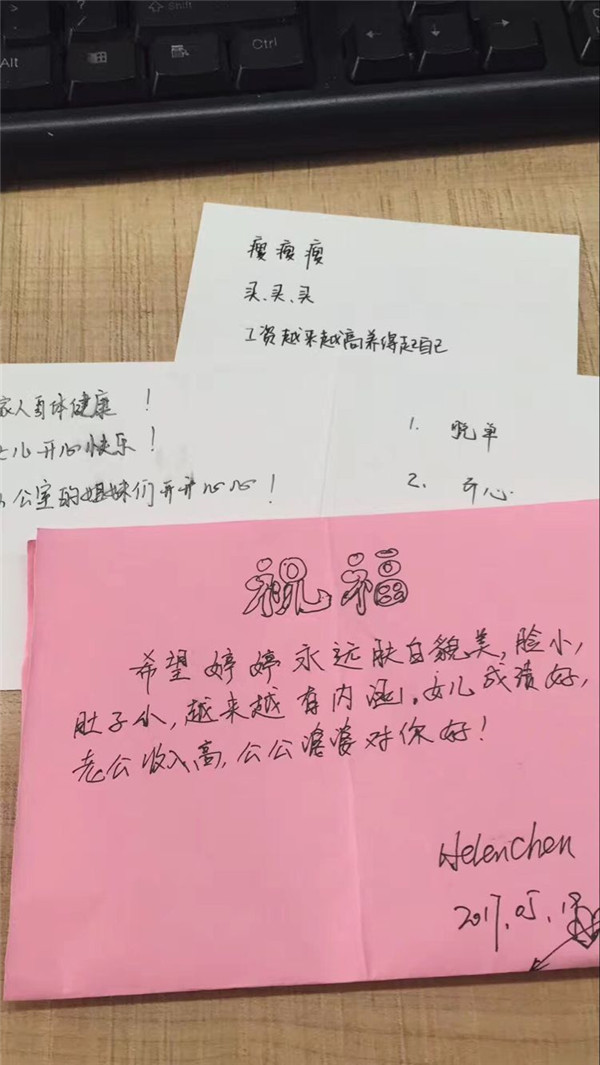 Shift
Alt
Ctrl
瘦瘦瘦
买、买、买
工资越来越高养得起自己
家人身体健康！
女儿开心快乐！
公室的姐妹们开开心心！
1. 脱单
2. 开心
祝福
希望婷婷永远肤白貌美，脸小，
肚子小，越来越有内涵。女儿成绩好，
老公收入高，公公婆婆对你好！
HelenChen
2017.05.18